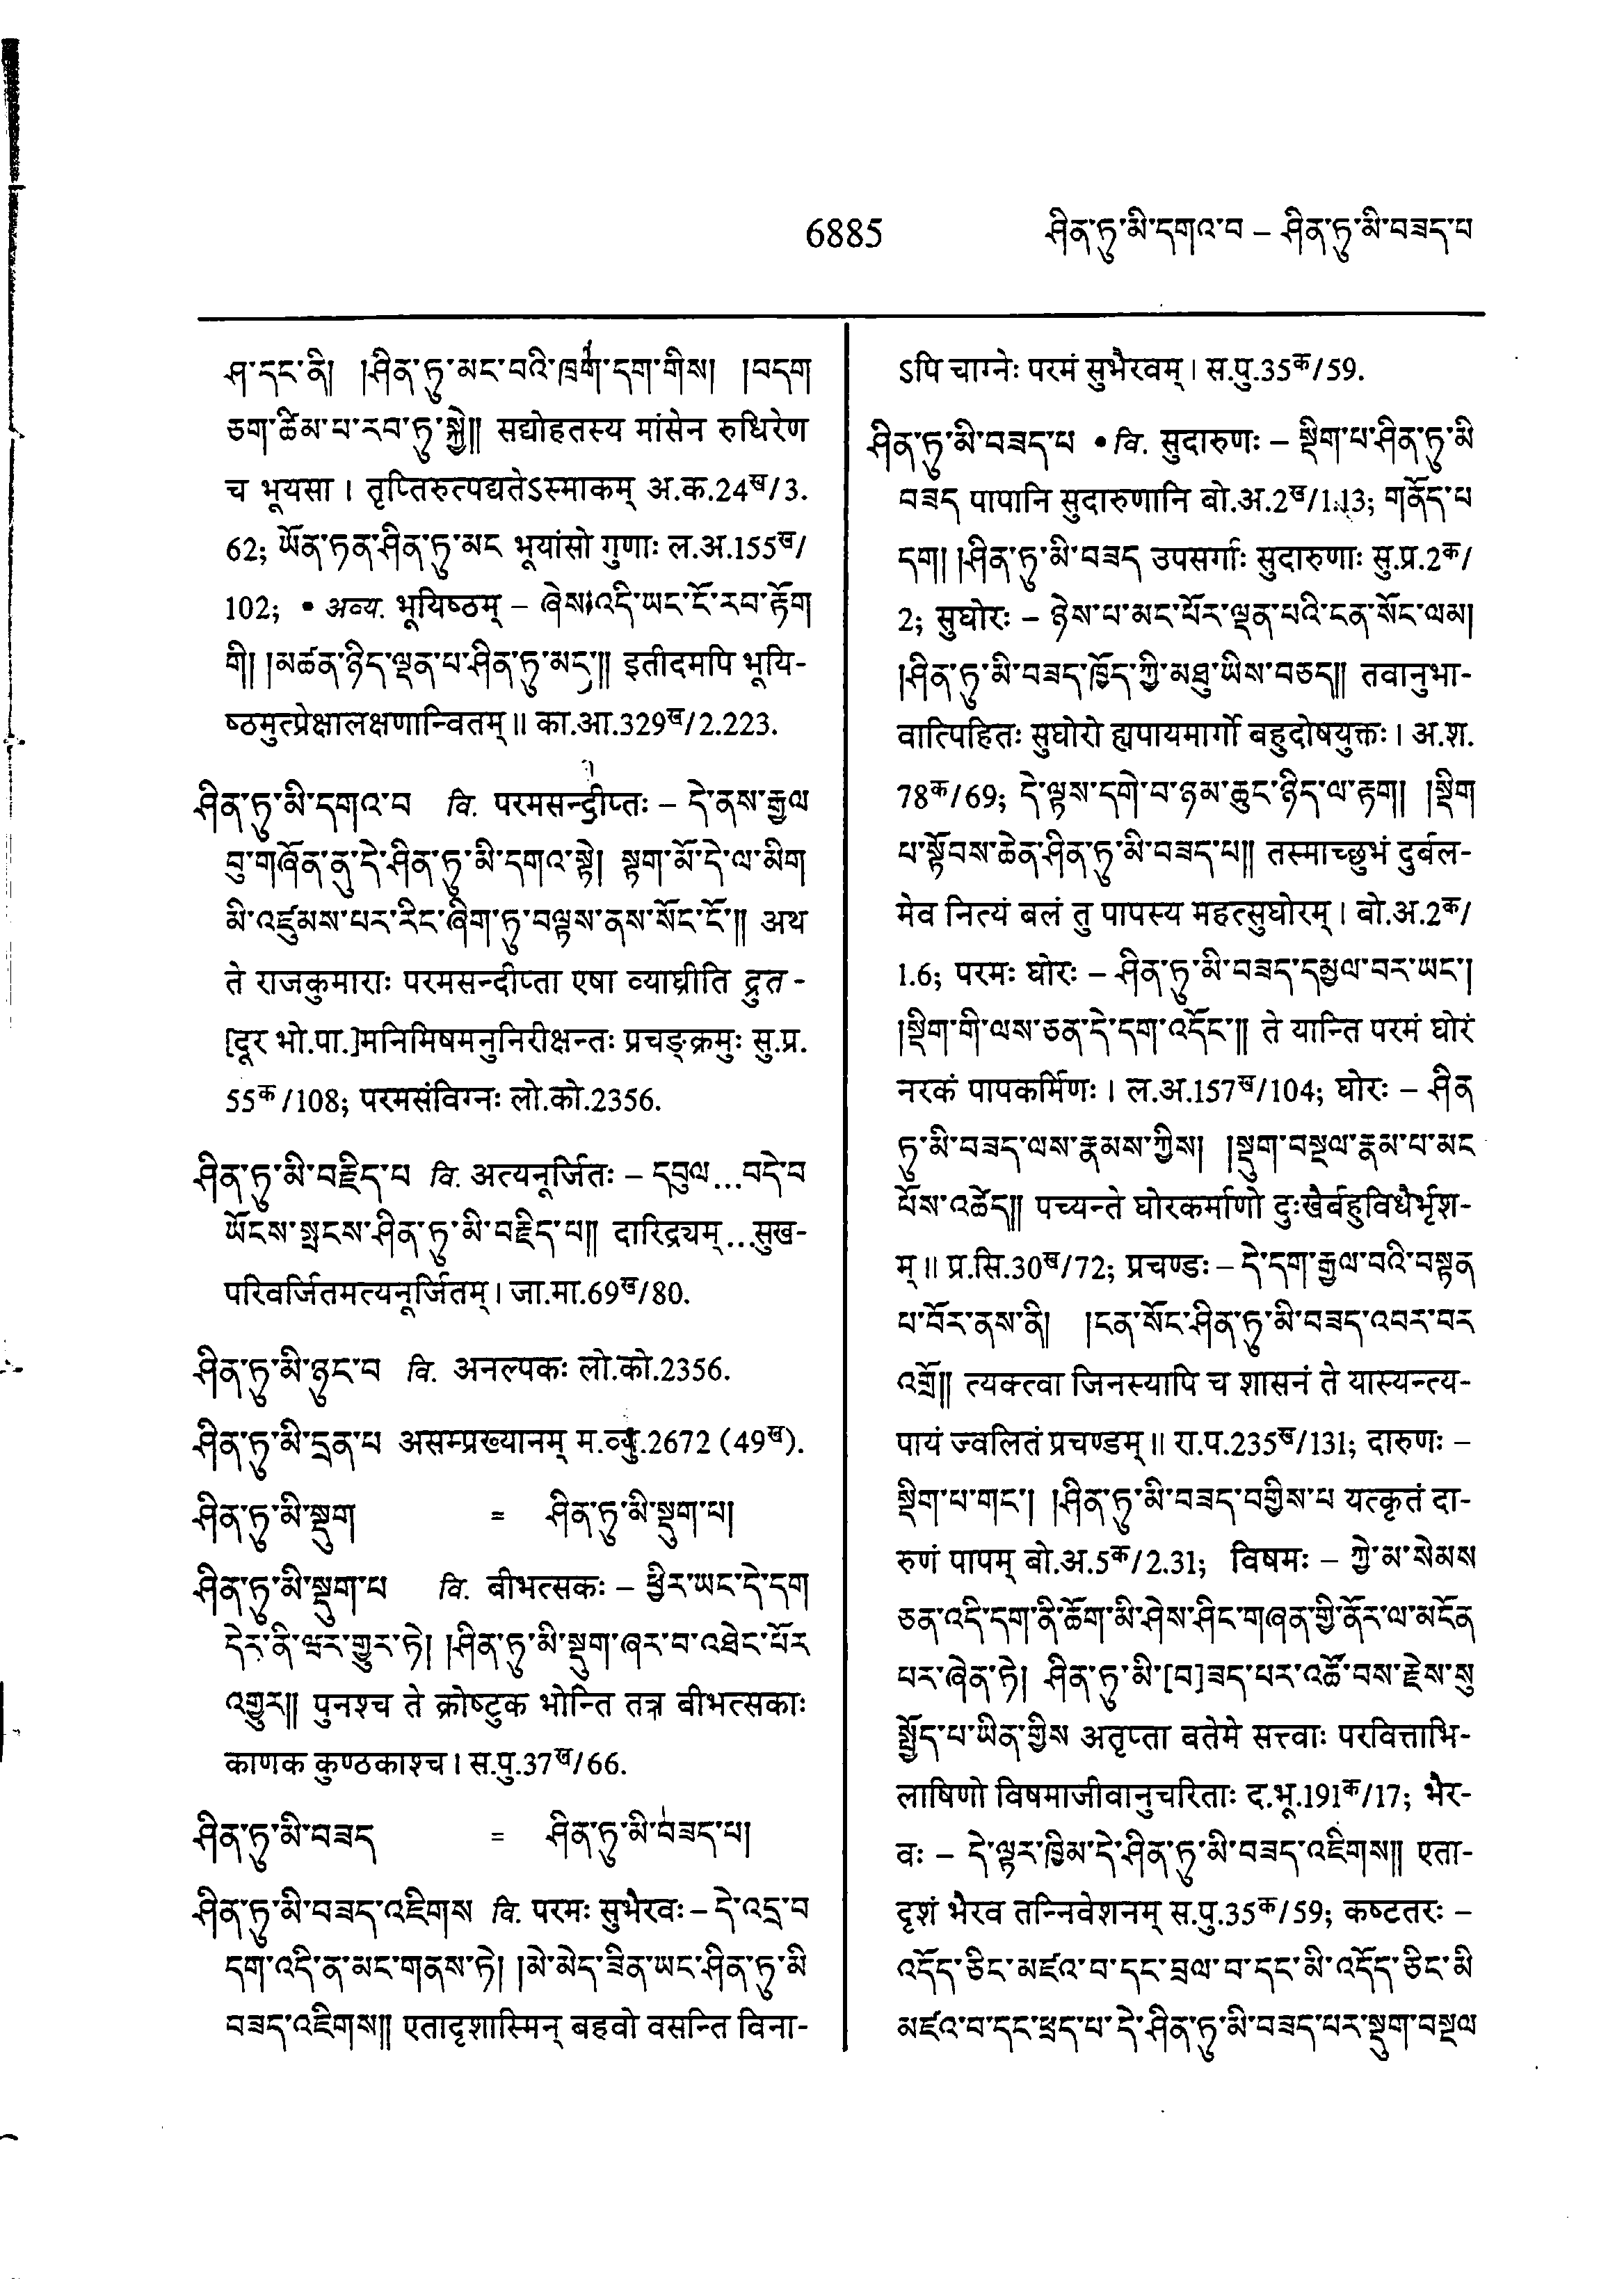 6885
ཤིན་ཏུ་མི་དགའ་བ – ཤིན་ཏུ་མི་བཟད་པ
ཤ་དང་ནི། །ཤིན་ཏུ་མང་བའི་ཁྲག་དག་གིས། །བདག
ཅག་ཚིམ་པ་རབ་ཏུ་སྐྱེ།། सद्योहतस्य मांसेन रुधिरेण
च भूयसा । तृप्तिरुत्पद्यतेऽस्माकम् अ.क.24ख/3.
62; ཡོན་ཏན་ཤིན་ཏུ་མང भूयांसो गुणाः ल.अ.155ख/
102; • अव्य. भूयिष्ठम् – ཞེས་འདི་ཡང་ངོ་རབ་རྟོག
གི། །མཚན་ཉིད་ལྡན་པ་ཤིན་ཏུ་མང་།། इतीदमपि भूयि-
ष्ठमुत्प्रेक्षालक्षणान्वितम् ॥ का.आ.329ख/2.223.
ཤིན་ཏུ་མི་དགའ་བ वि. परमसन्दीप्तः – དེ་ནས་རྒྱལ
བུ་གཞོན་ནུ་དེ་ཤིན་ཏུ་མི་དགའ་སྟེ། སྟག་མོ་དེ་ལ་མིག
མི་འཛུམས་པར་རིང་ཞིག་ཏུ་བལྟས་ནས་སོང་ངོ་།། अथ
ते राजकुमाराः परमसन्दीप्ता एषा व्याघ्रीति द्रुत -
[दूर भो.पा.]मनिमिषमनुनिरीक्षन्तः प्रचङ्क्रमुः सु.प्र.
55क/108; परमसंविग्नः लो.को.2356.
ཤིན་ཏུ་མི་བརྗིད་པ वि. अत्यनूर्जितः – དབུལ...བདེ་བ
ཡོངས་སྤངས་ཤིན་ཏུ་མི་བརྗིད་པ།། दारिद्र्यम्...सुख-
परिवर्जितमत्यनूर्जितम् । जा.मा.69ख/80.
ཤིན་ཏུ་མི་ཉུང་བ वि. अनल्पकः लो.को.2356.
ཤིན་ཏུ་མི་དྲན་པ असम्प्रख्यानम् म.व्यु.2672 (49ख).
ཤིན་ཏུ་མི་སྡུག = ཤིན་ཏུ་མི་སྡུག་པ།
ཤིན་ཏུ་མི་སྡུག་པ वि. बीभत्सकः – ཕྱིར་ཡང་དེ་དག
དེར་ནི་ཝར་གྱུར་ཏེ། །ཤིན་ཏུ་མི་སྡུག་ཞར་བ་འཐེང་པོར
འགྱུར།། पुनश्च ते क्रोष्टुक भोन्ति तत्र बीभत्सकाः
काणक कुण्ठकाश्च । स.पु.37ख/66.
ཤིན་ཏུ་མི་བཟད = ཤིན་ཏུ་མི་བཟད་པ།
ཤིན་ཏུ་མི་བཟད་འཇིགས वि. परमः सुभैरवः – དེ་འདྲ་བ
དག་འདི་ན་མང་གནས་ཏེ། །མེ་མེད་ཟིན་ཡང་ཤིན་ཏུ་མི
བཟད་འཇིགས།། एतादृशास्मिन् बहवो वसन्ति विना-
ऽपि चाग्नेः परमं सुभैरवम् । स.पु.35क/59.
ཤིན་ཏུ་མི་བཟད་པ • वि. सुदारुणः – སྡིག་པ་ཤིན་ཏུ་མི
བཟད पापानि सुदारुणानि बो.अ.2ख/1.13; གནོད་པ
དག། །ཤིན་ཏུ་མི་བཟད उपसर्गाः सुदारुणाः सु.प्र.2क/
2; सुघोरः – ཉེས་པ་མང་པོར་ལྡན་པའི་ངན་སོང་ལམ།
།ཤིན་ཏུ་མི་བཟད་ཁྱོད་ཀྱི་མཐུ་ཡིས་བཅད།། तवानुभा-
वात्पिहितः सुघोरो ह्यपायमार्गो बहुदोषयुक्तः । अ.श.
78क/69; དེ་ལྟས་དགེ་བ་ཉམ་ཆུང་ཉིད་ལ་རྟག། །སྡིག
པ་སྟོབས་ཆེན་ཤིན་ཏུ་མི་བཟད་པ།། तस्माच्छुभं दुर्बल-
मेव नित्यं बलं तु पापस्य महत्सुघोरम् । बो.अ.2क/
1.6; परमः घोरः – ཤིན་ཏུ་མི་བཟད་དམྱལ་བར་ཡང་།
།སྡིག་གི་ལས་ཅན་དེ་དག་འདོང་།། ते यान्ति परमं घोरं
नरकं पापकर्मिणः । ल.अ.157ख/104; घोरः – ཤིན
ཏུ་མི་བཟད་ལས་རྣམས་ཀྱིས། །སྡུག་བསྔལ་རྣམ་པ་མང
པོས་འཚེད།། पच्यन्ते घोरकर्माणो दुःखैर्बहुविधैर्भृश-
म् ॥ प्र.सि.30ख/72; प्रचण्डः – དེ་དག་རྒྱལ་བའི་བསྟན
པ་བོར་ནས་ནི། །ངན་སོང་ཤིན་ཏུ་མི་བཟད་འབར་བར
འགྲོ།། त्यक्त्वा जिनस्यापि च शासनं ते यास्यन्त्य-
पायं ज्वलितं प्रचण्डम् ॥ रा.प.235ख/131; दारुणः –
སྡིག་པ་གང་། །ཤིན་ཏུ་མི་བཟད་བགྱིས་པ यत्कृतं दा-
रुणं पापम् बो.अ.5क/2.31; विषमः – ཀྱེ་མ་སེམས
ཅན་འདི་དག་ནི་ཆོག་མི་ཤེས་ཤིང་གཞན་གྱི་ནོར་ལ་མངོན
པར་ཞེན་ཏེ། ཤིན་ཏུ་མི་[བ]ཟད་པར་འཚོ་བས་རྗེས་སུ
སྤྱོད་པ་ཡིན་གྱིས अतृप्ता बतेमे सत्त्वाः परवित्ताभि-
लाषिणो विषमाजीवानुचरिताः द.भू.191क/17; भैर-
वः – དེ་ལྟར་ཁྱིམ་དེ་ཤིན་ཏུ་མི་བཟད་འཇིགས།། एता-
दृशं भैरव तन्निवेशनम् स.पु.35क/59; कष्टतरः –
འདོད་ཅིང་མཛའ་བ་དང་བྲལ་བ་དང་མི་འདོད་ཅིང་མི
མཛའ་བ་དང་ཕྲད་པ་དེ་ཤིན་ཏུ་མི་བཟད་པར་སྡུག་བསྔལ